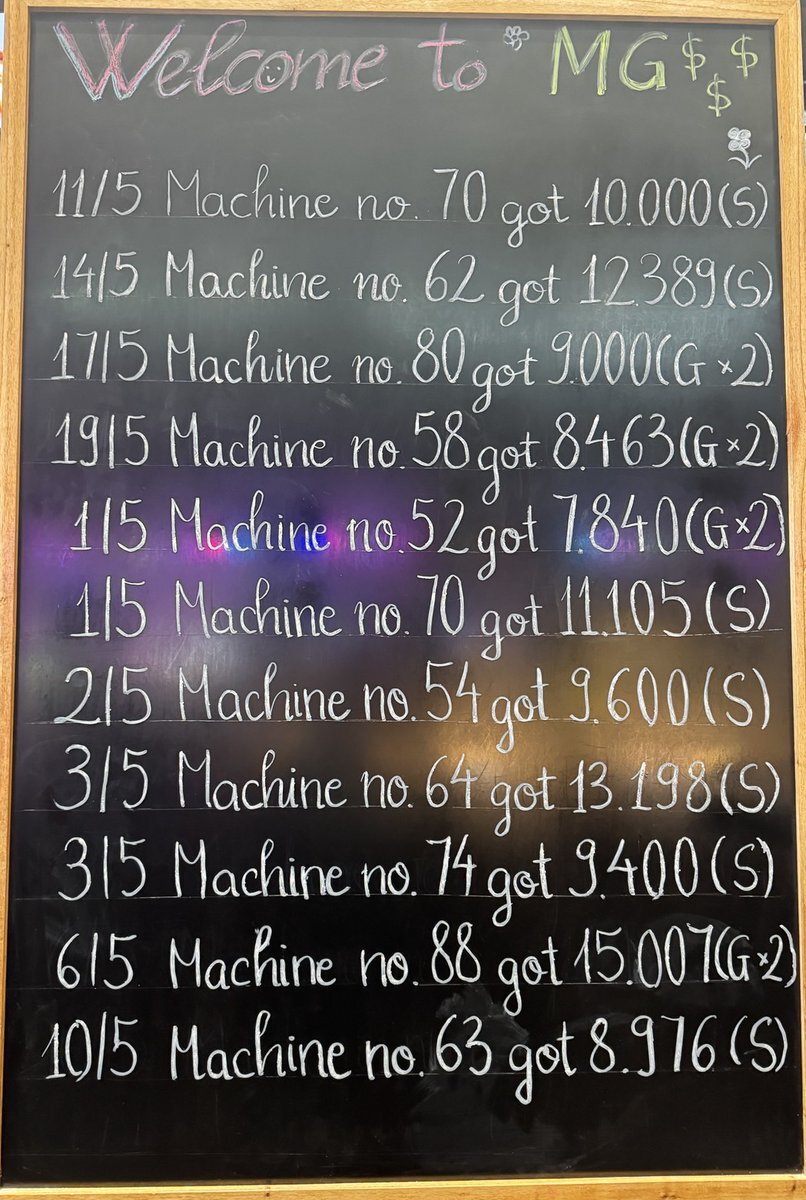 Welcome to MG$$$
11/5 Machine no. 70 got 10.000(S)
14/5 Machine no. 62 got 12.389(S)
17/5 Machine no. 80 got 9.000(G×2)
19/5 Machine no. 58 got 8.463(G×2)
1/5 Machine no. 52 got 7.840(G×2)
1/5 Machine no. 70 got 11.105(S)
2/5 Machine no. 54 got 9.600(S)
3/5 Machine no. 64 got 13.198(S)
3/5 Machine no. 74 got 9.400(S)
6/5 Machine no. 88 got 15.007(G×2)
10/5 Machine no. 63 got 8.976(S)